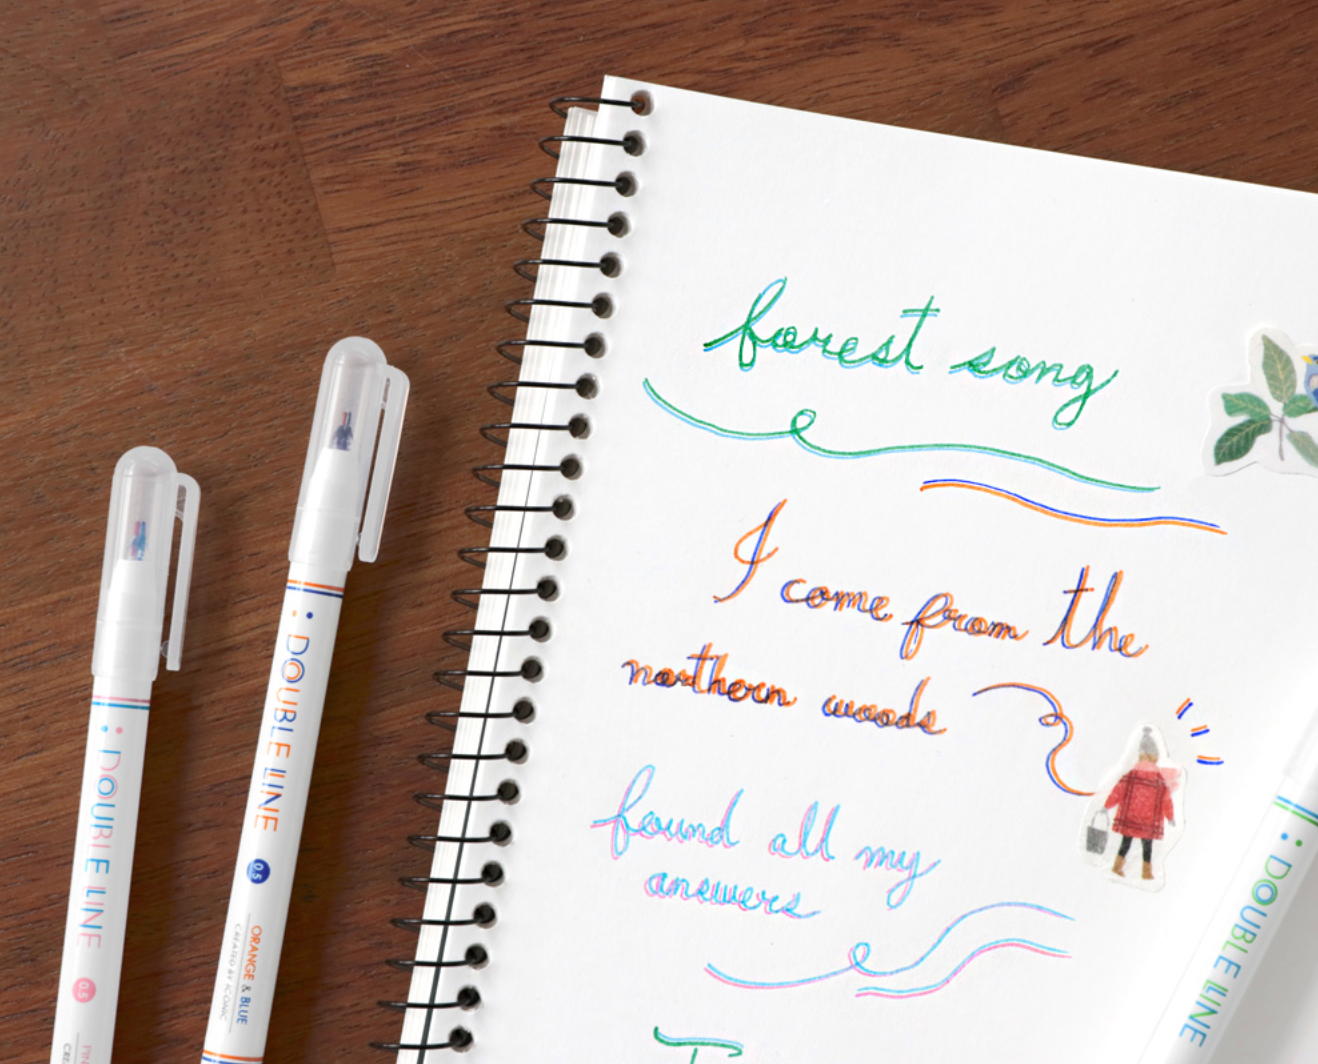 forest song
I come from the
northern woods
found all my
answers
DOUBLE LINE
0.5
DOUBLE LINE
0.5
ORANGE & BLUE
CREATED BY ICONIC
DOUBLE LINE